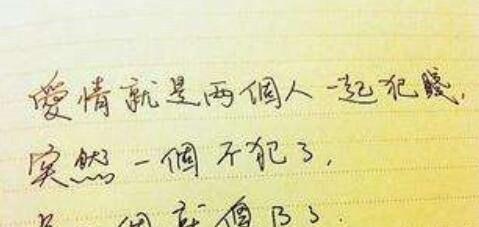 愛情就是两個人一起犯賤,
突然一個不犯了,
一個就傻B了.